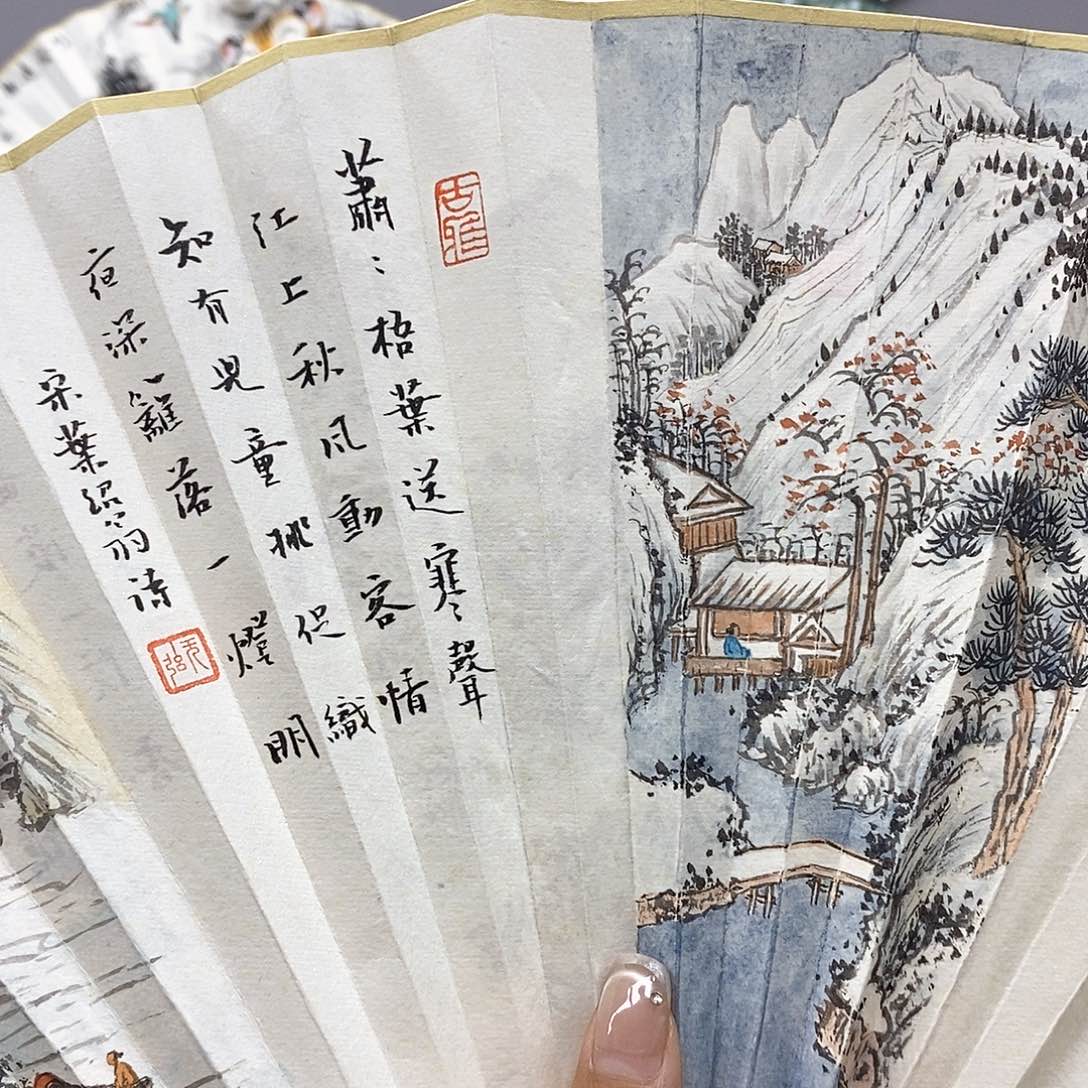 古雅
蕭〻梧葉送寒聲
江上秋风動客情
知有兒童挑促織
夜深籬落一燈明
宋葉紹翁诗